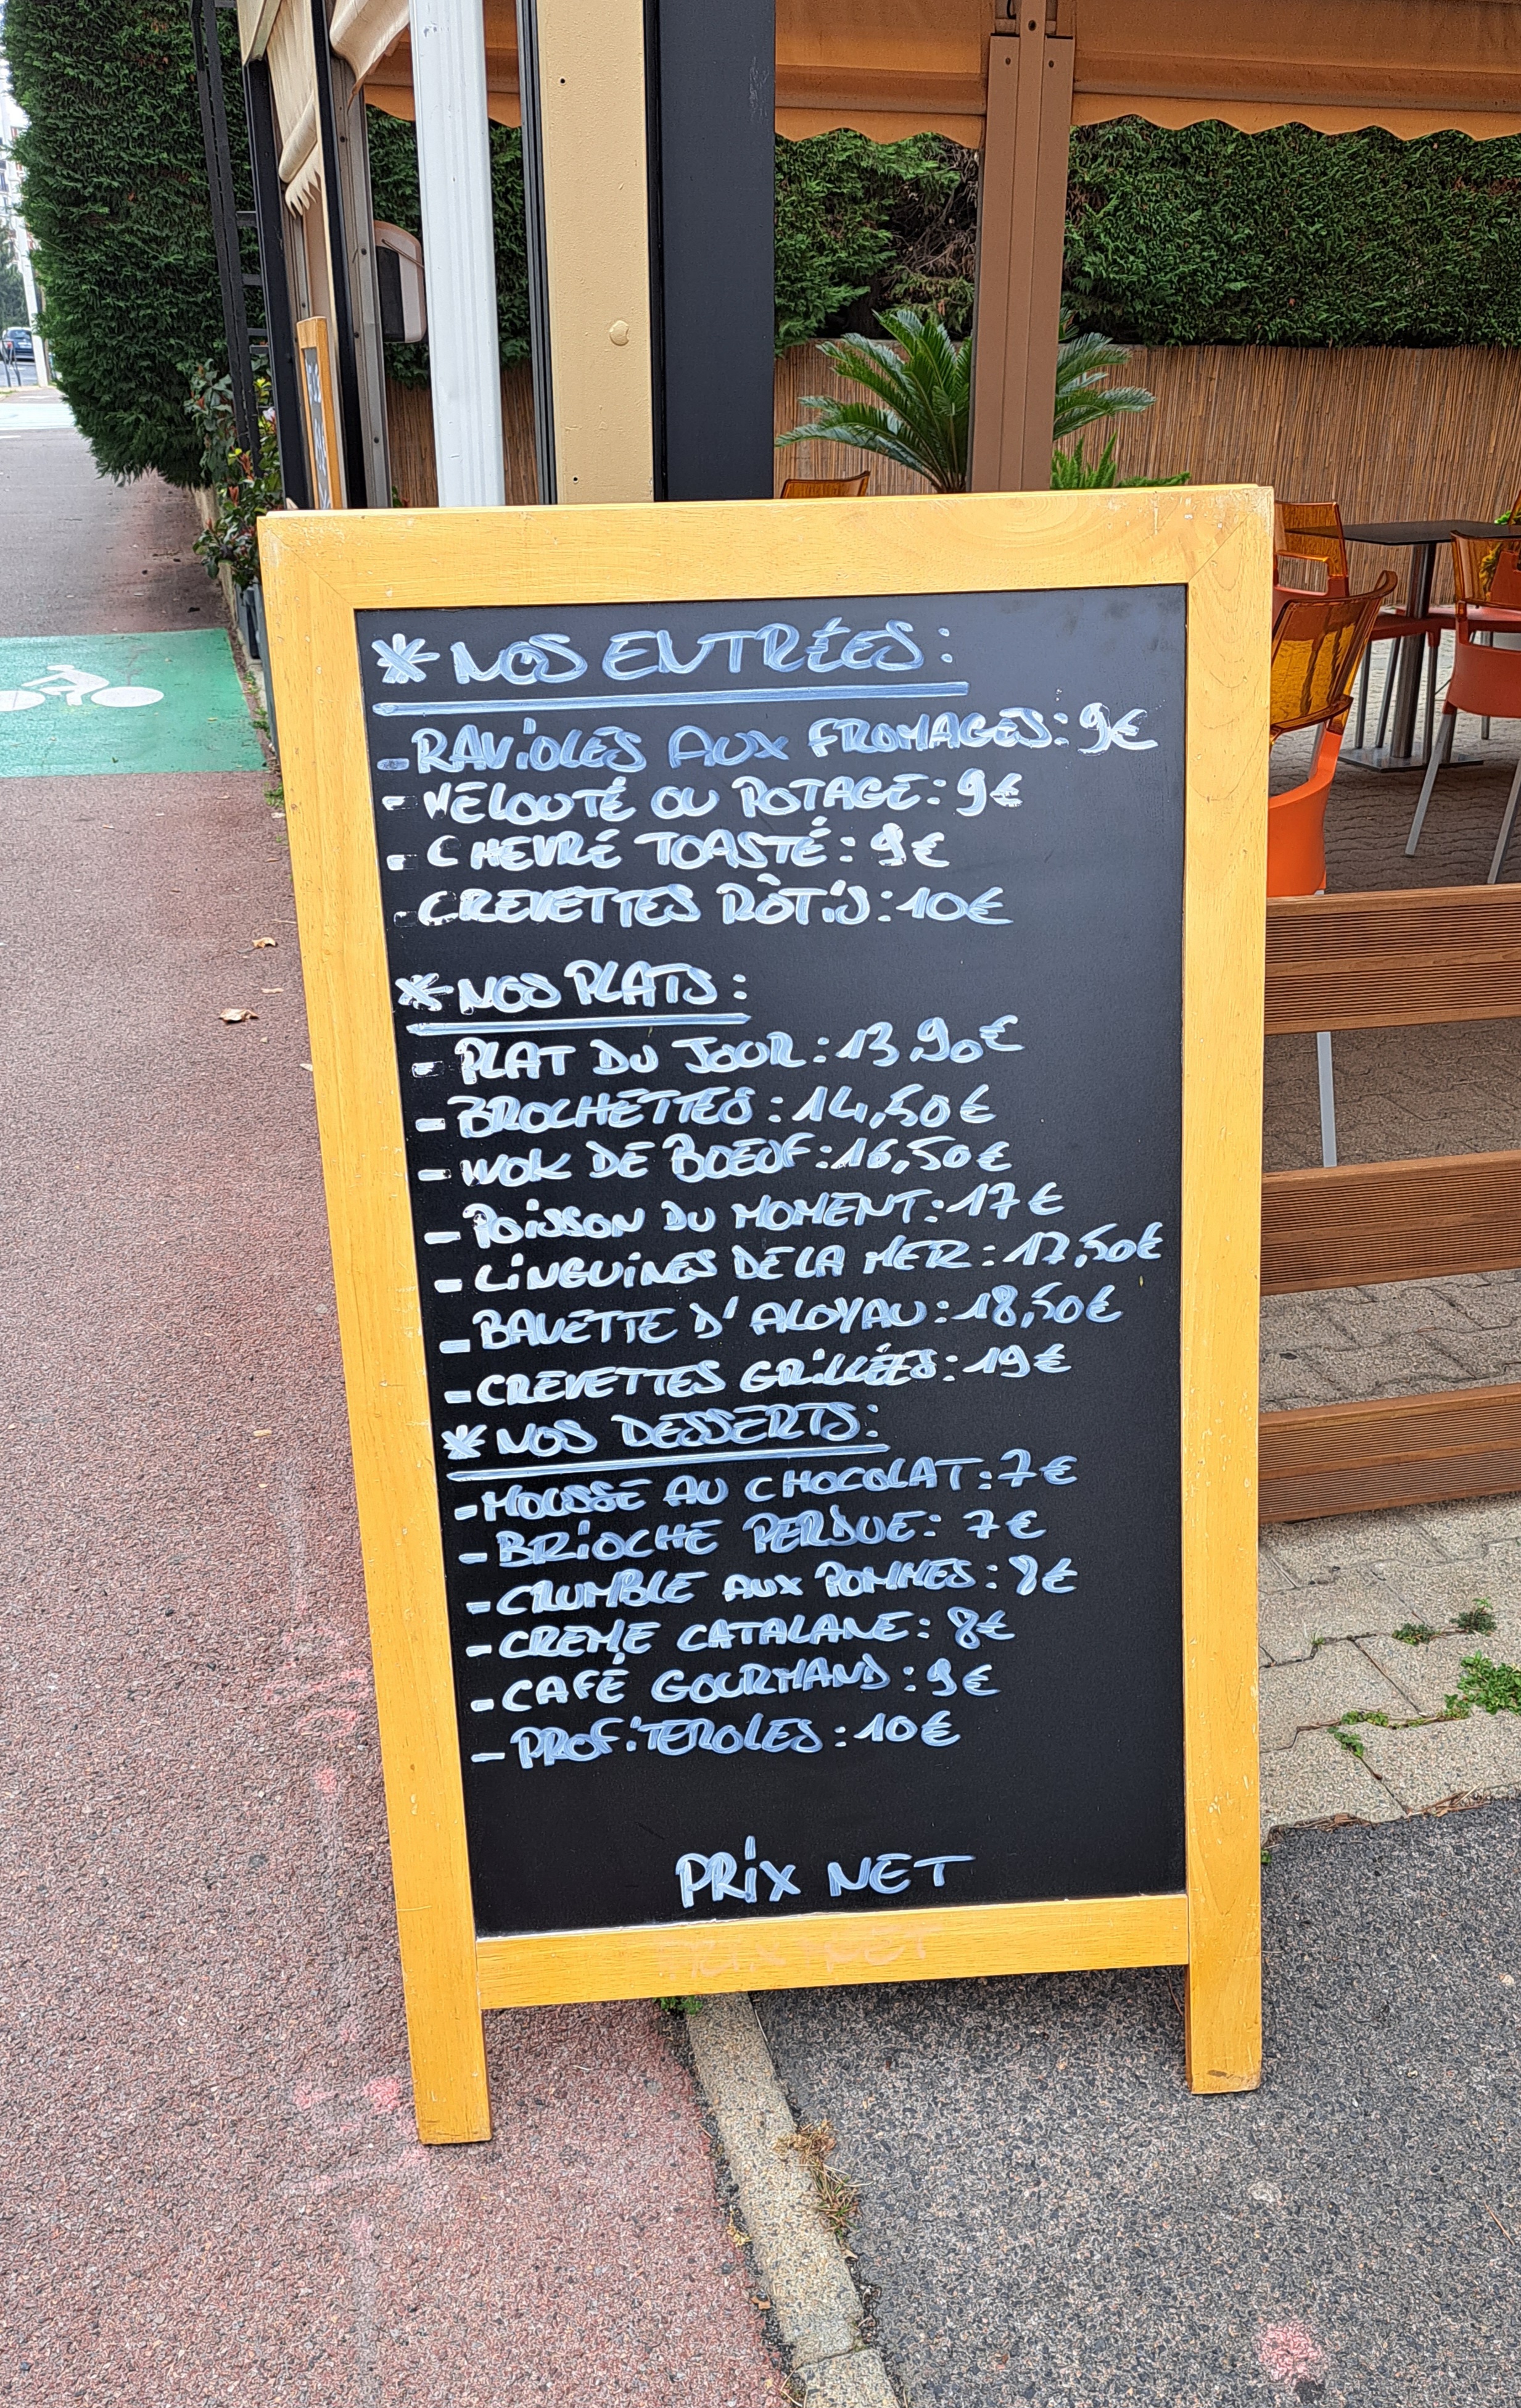 * NOS ENTRÉES :
- RAVIOLES AUX FROMAGES : 9€
- VELOUTÉ OU POTAGE : 9€
- CHEVRÉ TOASTÉ : 9€
- CREVETTES RÒTiS : 10€
* NOS PLATS :
- PLAT DU JOUR : 13,90€
- BROCHETTES : 14,50€
- WOK DE BOEUF : 16,50€
- POiSSON DU MOMENT : 17€
- LiNGUiNES DE LA MER : 17,50€
- BAVETTE D'ALOYAU : 18,50€
- CREVETTES GRiLLÉES : 19€
* NOS DESSERTS :
- MOUSSE AU CHOCOLAT : 7€
- BRiOCHE PERDUE : 7€
- CRUMBLE AUX POMMES : 8€
- CREME CATALANE : 8€
- CAFÉ GOURMAND : 9€
- PROFiTEROLES : 10€
PRiX NET
PRiX NET